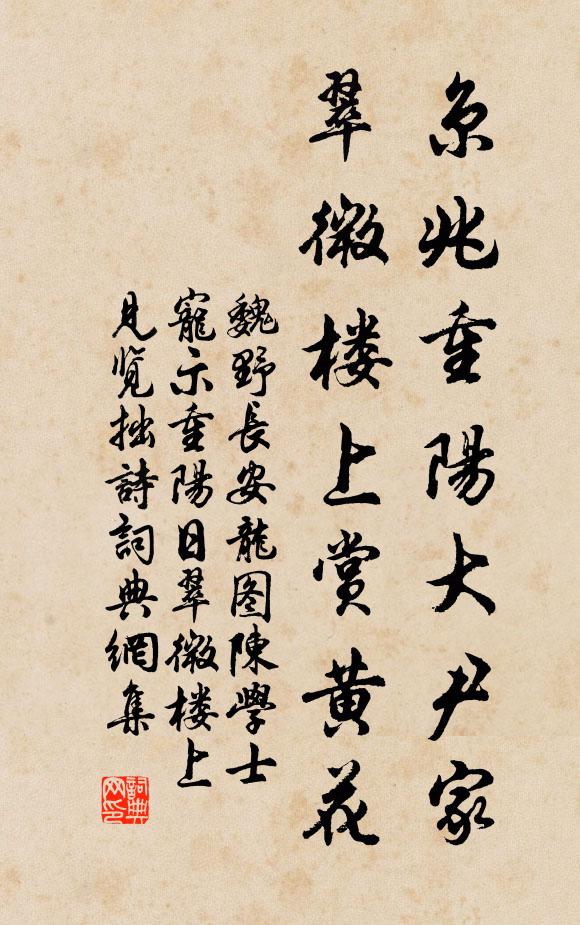 京兆重陽大尹家
翠微楼上赏黄花
魏野長安龍图陳學士
寵示重陽日翠微楼上
見览拙詩詞典網集
詞典网印